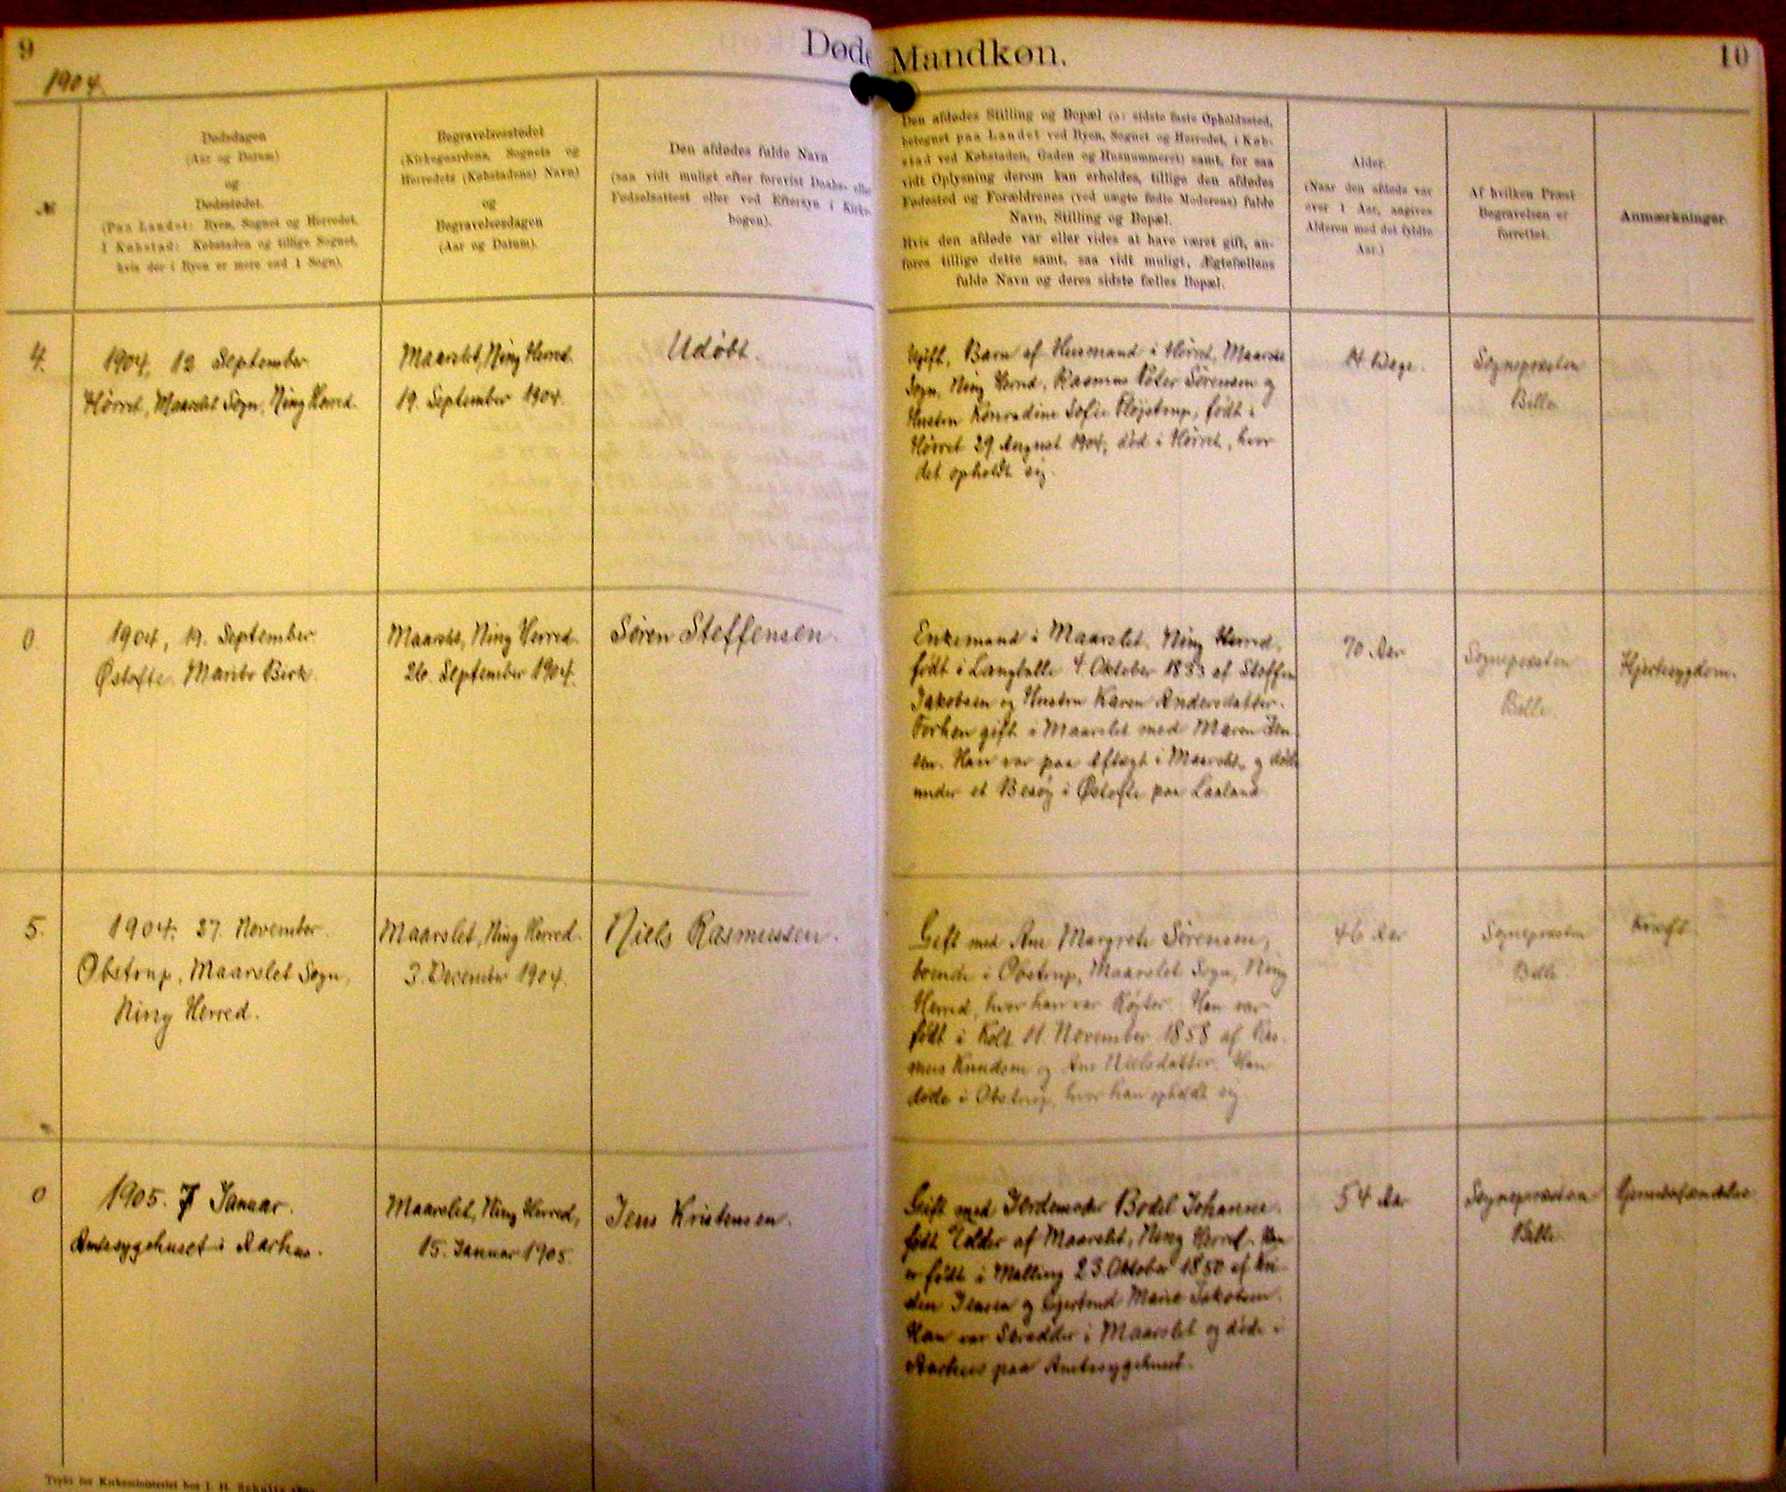 9
Døde
Mandkøn.
10
1904.
№
Dødsdagen
(Aar og Datum)
og
Dødsstedet.
(Paa Landet: Byen, Sognet og Herredet,
I Købstad: Købstaden og tillige Sognet,
hvis der i Byen er mere end 1 Sogn).
Begravelsesstedet
(Kirkegaardens, Sognets og
Herredets (Købstadens) Navn)
og
Begravelsesdagen
(Aar og Datum).
Den afdødes fulde Navn
(saa vidt muligt efter forevist Daabs- eller
Fødselsattest eller ved Eftersyn i Kirke-
bogen).
Den afdødes Stilling og Bopæl (o: sidste faste Opholdssted,
betegnet paa Landet ved Byen, Sognet og Herredet, i Køb-
stad ved Købstaden, Gaden og Husnummeret) samt, for saa
vidt Oplysning derom kan erholdes, tillige den afdødes
Fødested og Forældrenes (ved uægte fødte Moderens) fulde
Navn, Stilling og Bopæl.
Hvis den afdøde var eller vides at have været gift, an-
føres tillige dette samt, saa vidt muligt, Ægtefællens
fulde Navn og deres sidste fælles Bopæl.
Alder.
(Naar den afdøde var
over 1 Aar, angives
Alderen med det fyldte
Aar.)
Af hvilken Præst
Begravelsen er
forrettet.
Anmærkninger.
4.
1904, 12 September
Hørret, Maarslet Sogn, Ning Herred.
Maarslet, Ning Herred.
19. September 1904.
Udøbt.
Ugift, Barn af Husmand i Hørret, Maarslet
Sogn, Ning Herred, Rasmus Peter Sørensen og
Hustru Konradine Sofie Pløjstrup, født i
Hørret 29 August 1904, død i Hørret, hvor
det opholdt sig.
14 Dage.
Sognepræsten
Bille
0
1904, 19. September
Østofte, Maribo Birk.
Maarslet, Ning Herred.
26. September 1904.
Søren Steffensen.
Enkemand i Maarslet, Ning Herred,
født i Langballe 4 Oktober 1833 af Steffen
Jakobsen og Hustru Karen Andersdatter.
Forhen gift i Maarslet med Maren Jen
sen. Han var paa Aftægt i Maarslet og døde
under et Besøg i Østofte paa Laaland
70 Aar
Sognepræsten
Bille.
Hjertesygdom.
5.
1904. 27. November.
Obstrup, Maarslet Sogn,
Ning Herred.
Maarslet, Ning Herred.
3. December 1904.
Niels Rasmussen.
Gift med Ane Margrete Sørensen,
boende i Obstrup, Maarslet Sogn, Ning
Herred, hvor han var Røgter. Han var
født i Kolt 11. November 1858 af Ras-
mus Knudsen og Ane Nielsdatter. Han
døde i Obstrup, hvor han opholdt sig
46 Aar
Sognepræsten
Bille.
Kræft.
0
1905. 7 Januar.
Amtssygehuset i Aarhus.
Maarslet, Ning Herred,
15. Januar 1905.
Jens Kristensen.
Gift med Jordemoder Bodil Johanne
født Tolder af Maarslet, Ning Herred. Han
er født i Malling 23 Oktober 1850 af Kri-
sten Jensen og Gjertrud Marie Jakobsen.
Han var Skrædder i Maarslet og døde i
Aarhus paa Amtssygehuset.
54 Aar
Sognepræsten
Bille
Trykt for Kirkeministeriet hos J. H. Schultz